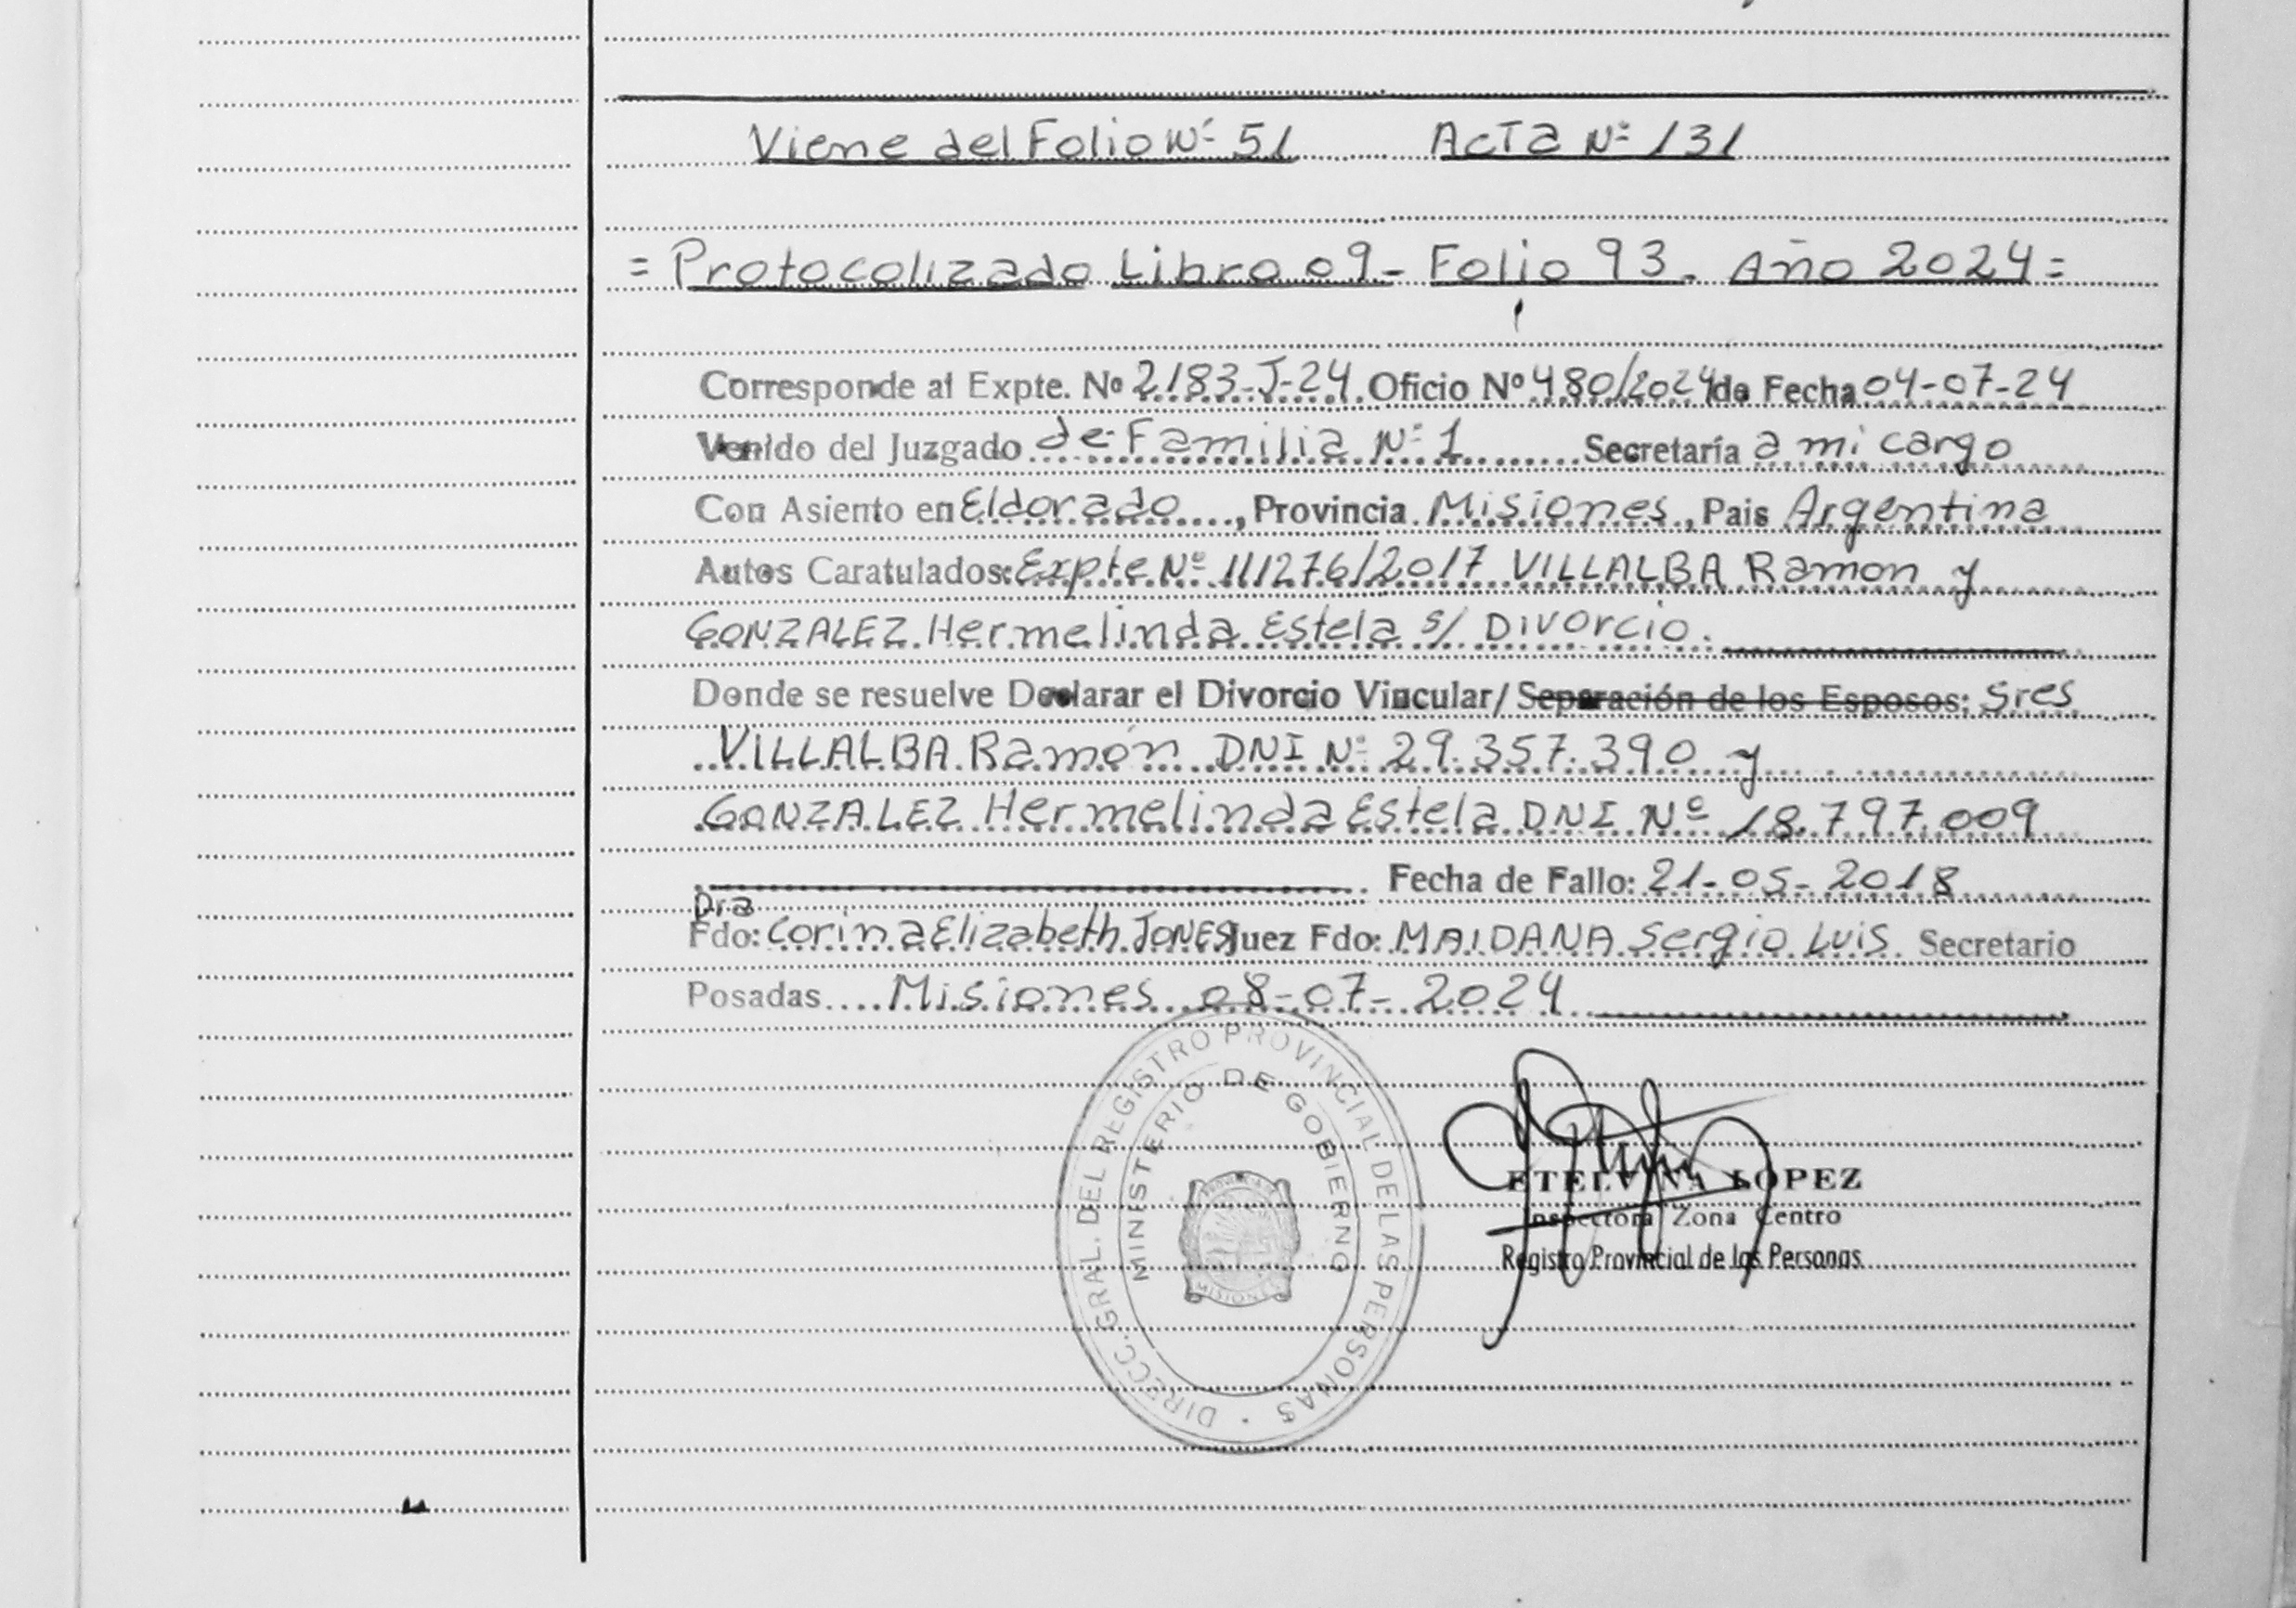 Viene del Folio Nº 51 Acta Nº 131
= Protocolizado Libro 09 - Folio 93. Año 2024 =
Corresponde al Expte. Nº 2183-J-24. Oficio Nº 480/2024 de Fecha 04-07-24
Venido del Juzgado de Familia Nº 1 Secretaría a mi cargo
Con Asiento en Eldorado, Provincia Misiones, Pais Argentina
Autos Caratulados: Expte Nº 111276/2017 VILLALBA Ramon y
GONZALEZ Hermelinda Estela s/ Divorcio.
Donde se resuelve Declarar el Divorcio Vincular/ Separación de los Esposos: Sres
VILLALBA Ramón DNI Nº 29.357.390 y
GONZALEZ Hermelinda Estela DNI Nº 18.797.009
Fecha de Fallo: 21-05-2018
Dra
Fdo: Corina Elizabeth JONES Juez Fdo: MAIDANA Sergio Luis. Secretario
Posadas.... Misiones 08-07-2024
DIRECC. GRAL. DEL REGISTRO PROVINCIAL DE LAS PERSONAS
MINISTERIO DE GOBIERNO
MISIONES
ETELVINA LOPEZ
Inspectora Zona Centro
Registro Provincial de las Personas